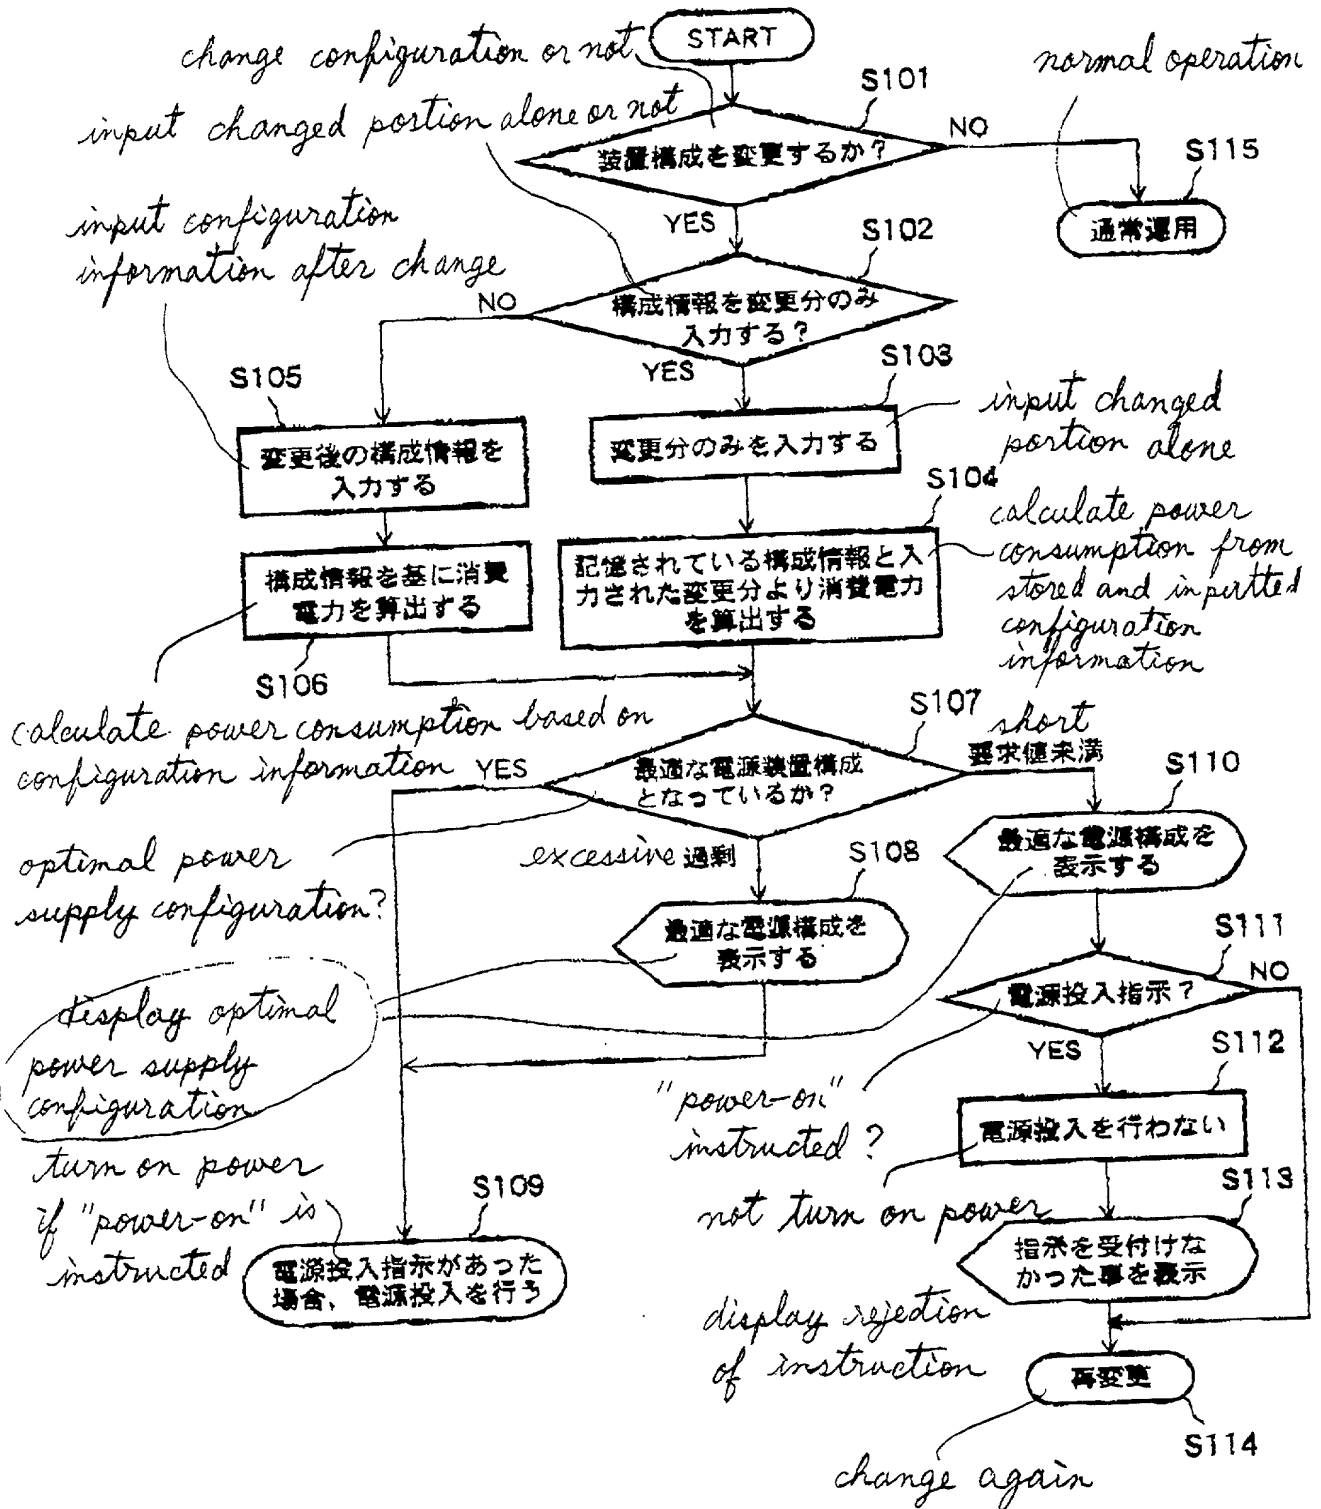 change configuration or not
START
normal operation
S101
input changed portion alone or not
NO
装置構成を変更するか？
S115
YES
通常運用
input configuration
information after change
S102
NO
構成情報を変更分のみ
入力する？
YES
S103
S105
input changed
portion alone
変更後の構成情報を
入力する
変更分のみを入力する
S104
calculate power
consumption from
stored and inputted
configuration
information
構成情報を基に消費
電力を算出する
記憶されている構成情報と入
力された変更分より消費電力
を算出する
S106
calculate power consumption based on
configuration information
S107
short
要求値未満
YES
最適な電源装置構成
となっているか？
S110
optimal power
supply configuration?
excessive 過剰
S108
最適な電源構成を
表示する
最適な電源構成を
表示する
S111
display optimal
power supply
configuration
電源投入指示？
NO
YES
S112
"power-on"
instructed?
電源投入を行わない
turn on power
if "power-on" is
instructed
S109
not turn on power
S113
電源投入指示があった
場合、電源投入を行う
指示を受付けな
かった事を表示
display rejection
of instruction
再変更
S114
change again